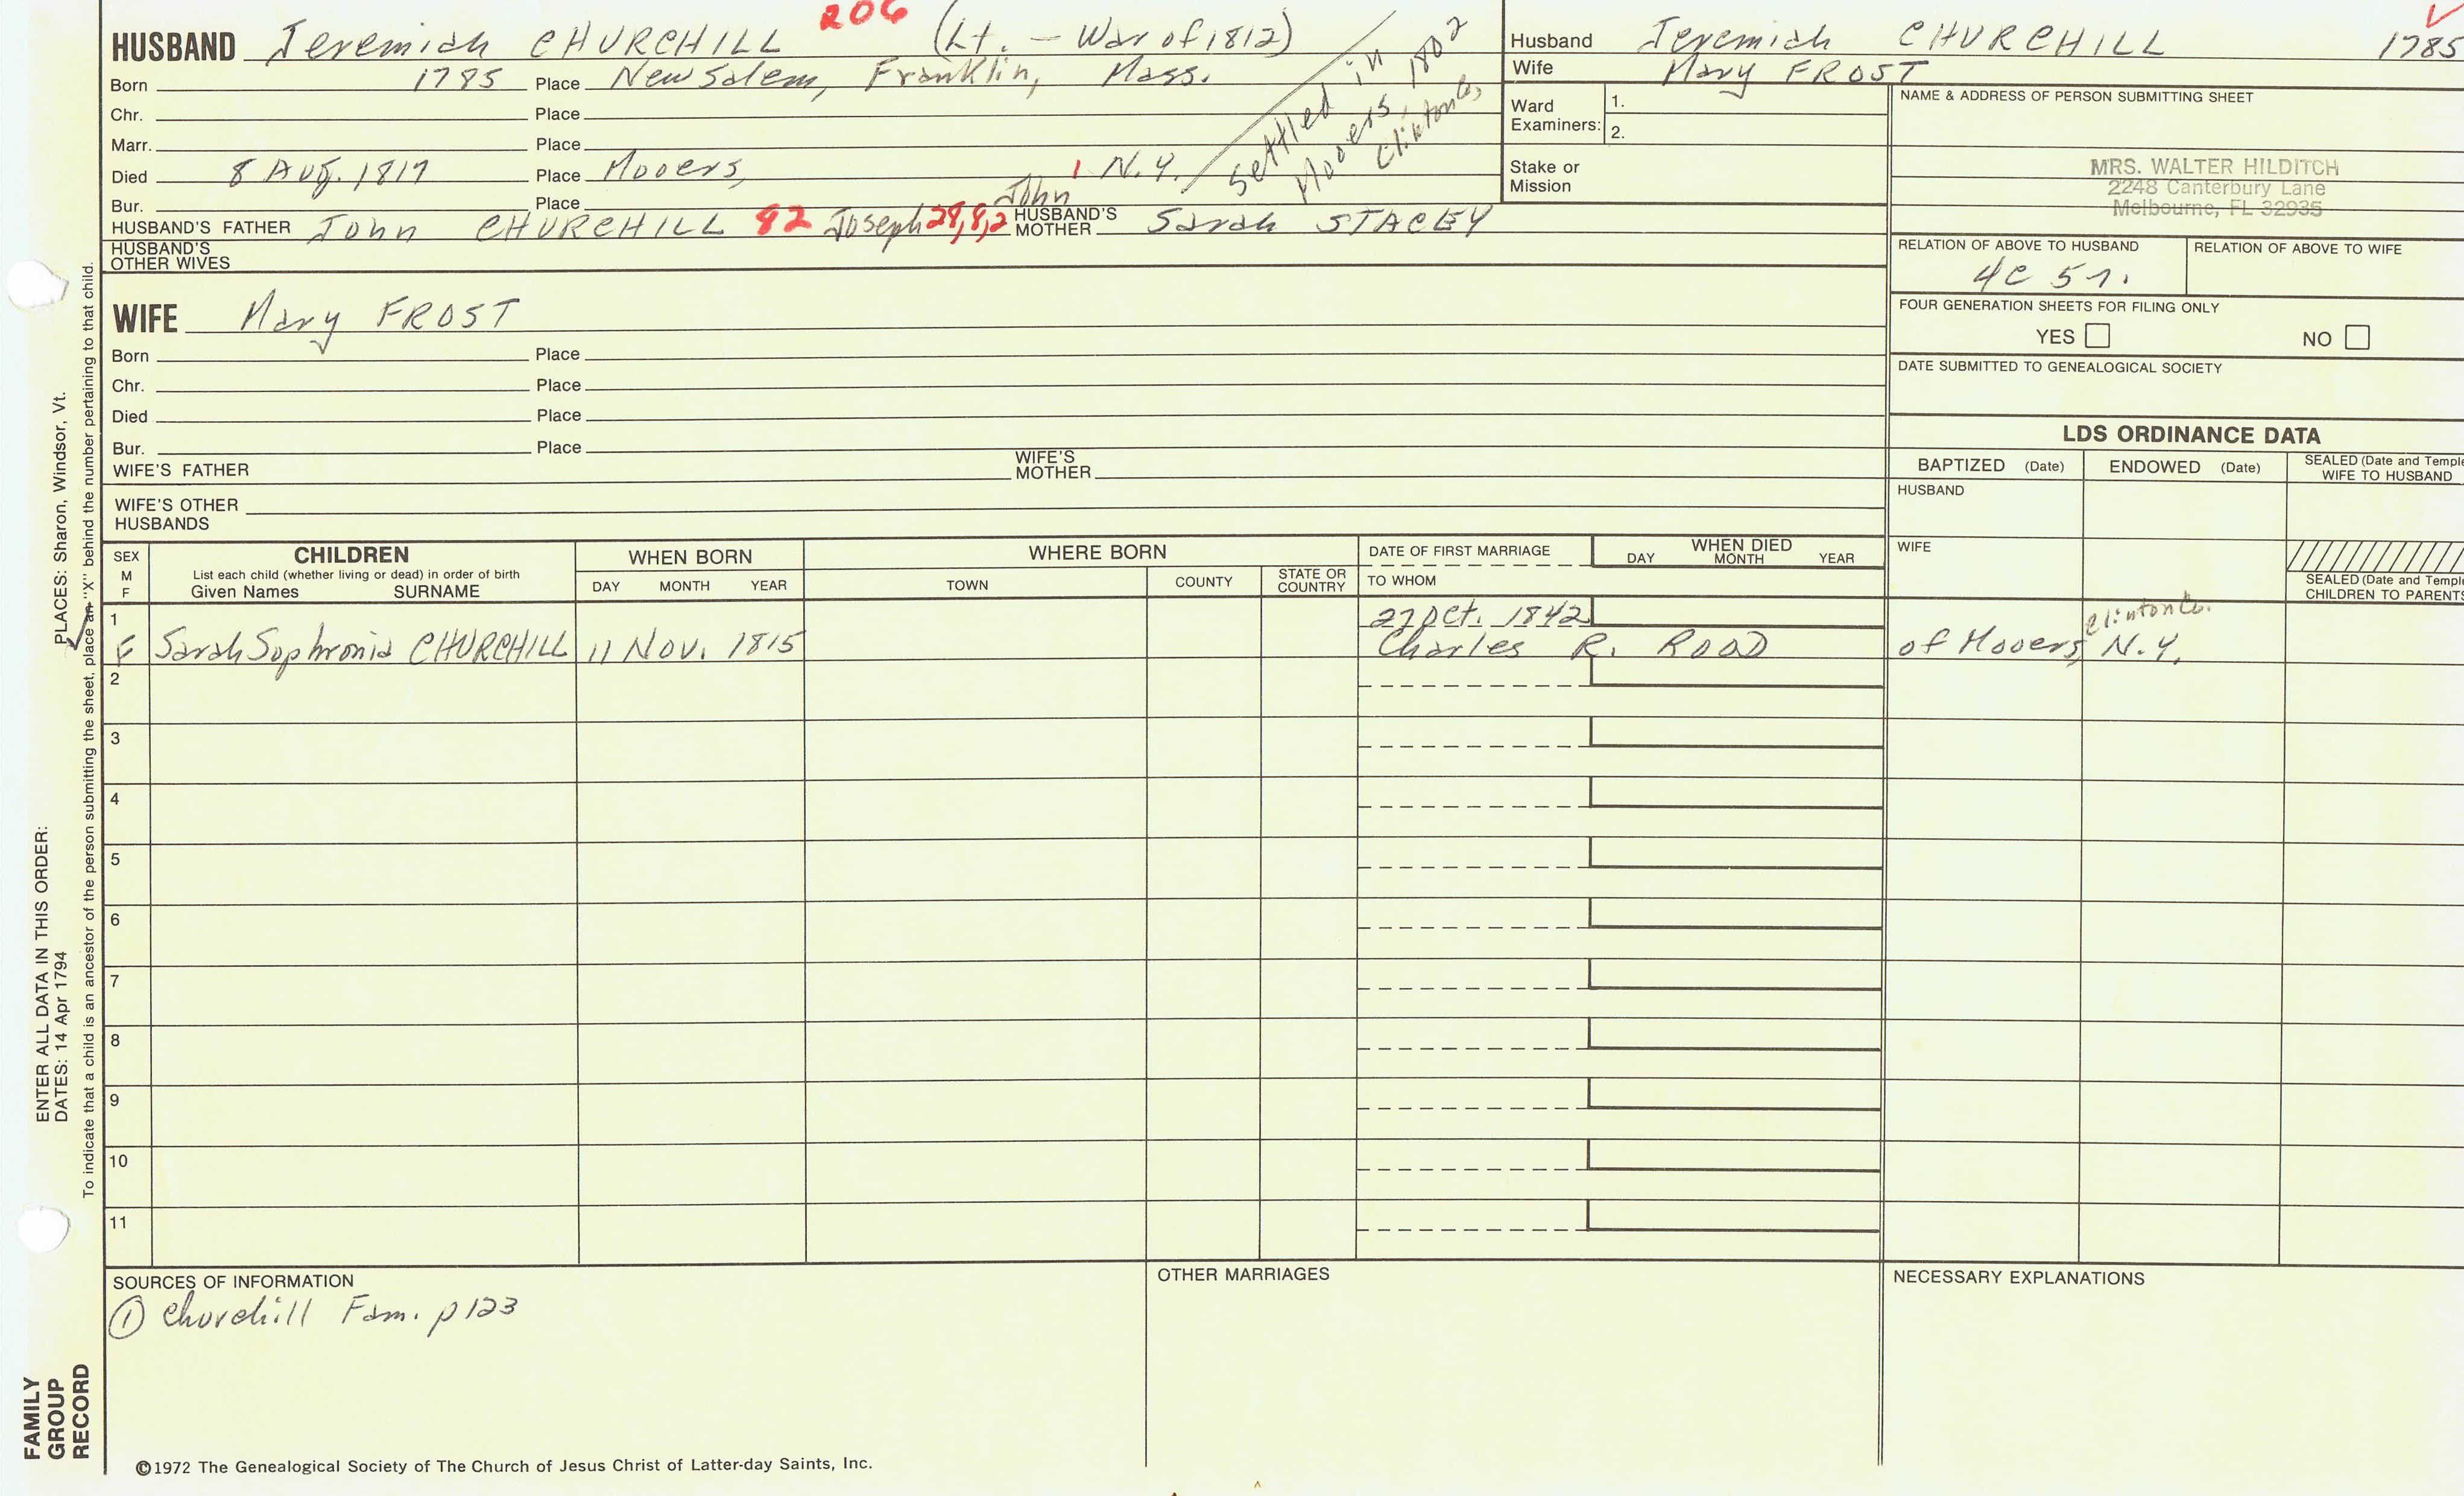 206
HUSBAND Jeremiah CHURCHILL (Lt. - War of 1812)
Born 1785 Place New Salem, Franklin, Mass.
Chr. Place
Marr. Place
Died 8 Aug. 1817 Place Mooers, N.Y.
Bur. Place
Settled in
Mooers, 1802
Clinton Co,
John 1
HUSBAND'S FATHER John CHURCHILL 82 Joseph 28,8,2 HUSBAND'S MOTHER Sarah STACEY
HUSBAND'S OTHER WIVES
WIFE Mary FROST
Born Place
Chr. Place
Died Place
Bur. Place
WIFE'S FATHER WIFE'S MOTHER
WIFE'S OTHER HUSBANDS
Husband Jeremiah CHURCHILL 1785
Wife Mary FROST
Ward Examiners: 1.
2.
Stake or Mission
NAME & ADDRESS OF PERSON SUBMITTING SHEET
MRS. WALTER HILDITCH
2248 Canterbury Lane
Melbourne, FL 32935
RELATION OF ABOVE TO HUSBAND RELATION OF ABOVE TO WIFE
4C 5r.
FOUR GENERATION SHEETS FOR FILING ONLY
YES NO
DATE SUBMITTED TO GENEALOGICAL SOCIETY
LDS ORDINANCE DATA
BAPTIZED (Date) ENDOWED (Date) SEALED (Date and Temple
WIFE TO HUSBAND
HUSBAND
WIFE
SEALED (Date and Temple
CHILDREN TO PARENTS
SEX
M
F
CHILDREN
List each child (whether living or dead) in order of birth
Given Names SURNAME
WHEN BORN
DAY MONTH YEAR
WHERE BORN
TOWN COUNTY STATE OR COUNTRY
DATE OF FIRST MARRIAGE
TO WHOM
WHEN DIED
DAY MONTH YEAR
1 27 Oct. 1842 Clinton Co.
F Sarah Sophronia CHURCHILL 11 Nov. 1815 Charles R. ROOD of Mooers, N.Y.
2
3
4
5
6
7
8
9
10
11
SOURCES OF INFORMATION
① Churchill Fam. p123
OTHER MARRIAGES
NECESSARY EXPLANATIONS
©1972 The Genealogical Society of The Church of Jesus Christ of Latter-day Saints, Inc.
FAMILY
GROUP
RECORD
ENTER ALL DATA IN THIS ORDER:
DATES: 14 Apr 1794 PLACES: Sharon, Windsor, Vt.
To indicate that a child is an ancestor of the person submitting the sheet, place an "X" behind the number pertaining to that child.